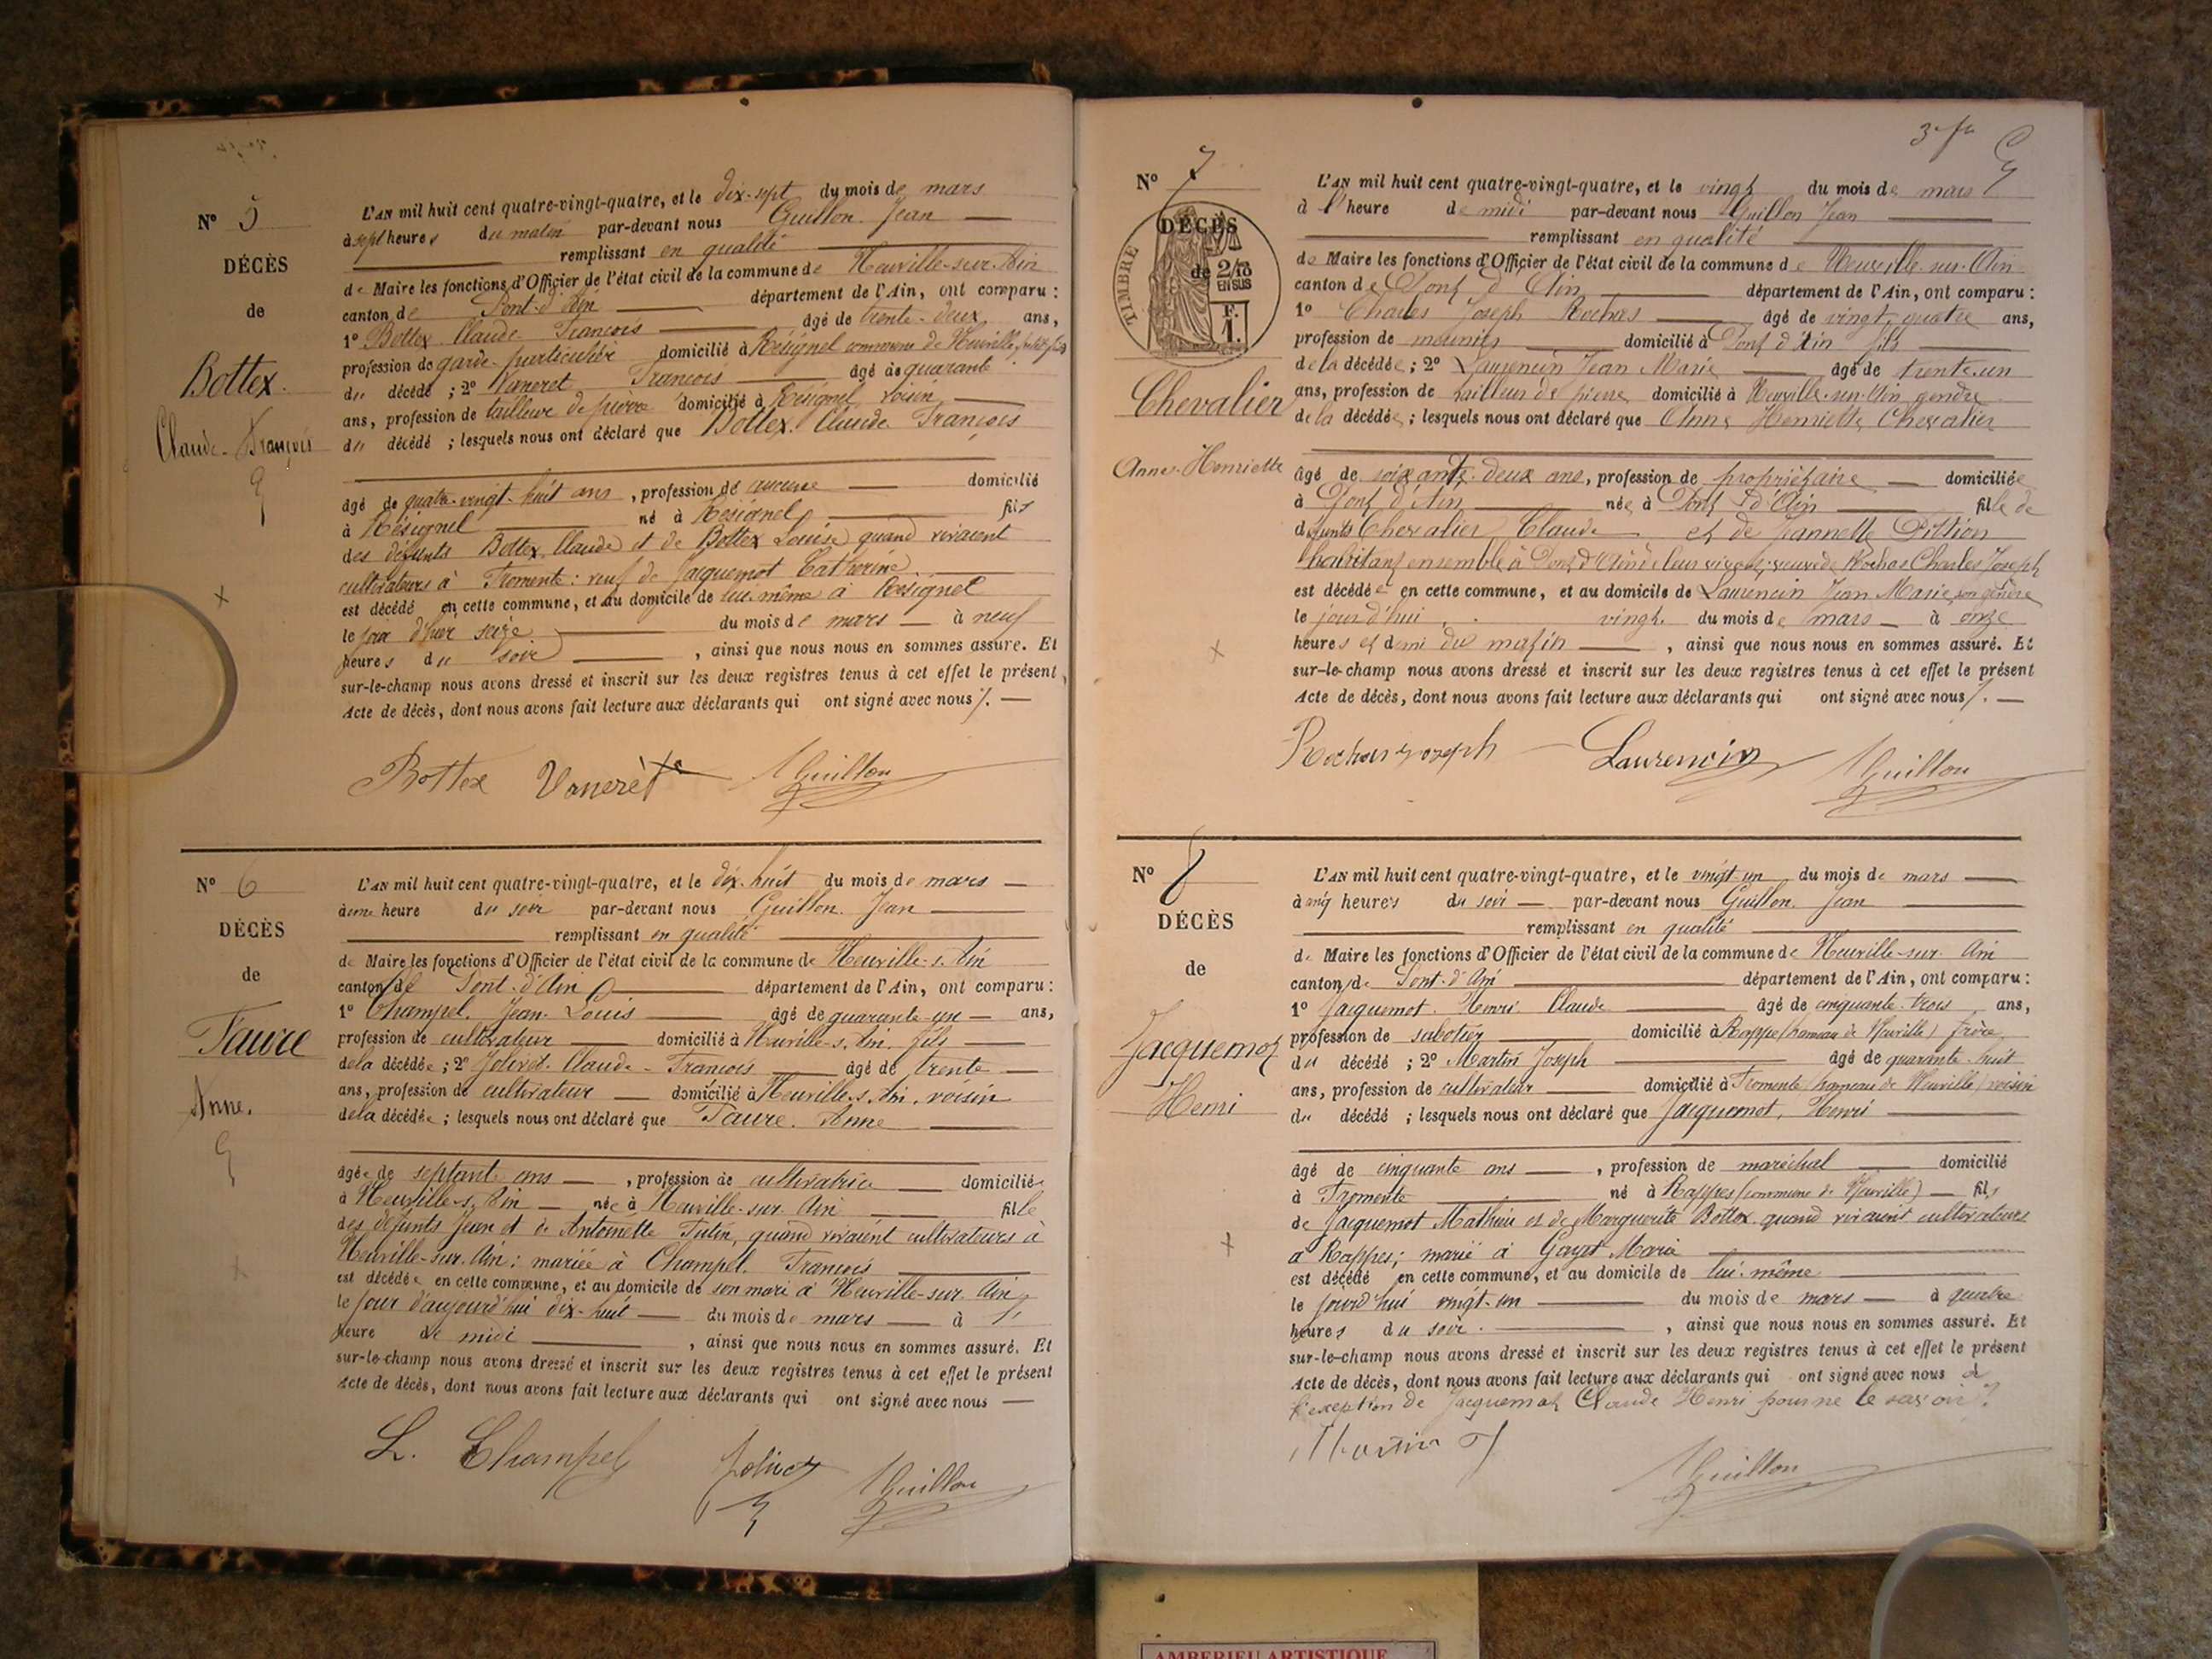 N° 5
DÉCÈS
de
Bottex
Claude-François
L'AN mil huit cent quatre-vingt-quatre, et le dix-sept du mois de mars
à sept heures du matin par-devant nous Guillon Jean
remplissant en qualité
de Maire les fonctions d'Officier de l'état civil de la commune de Neuville-sur-Ain
canton de Pont-d'Ain département de l'Ain, ont comparu :
1° Bottex Claude François âgé de trente-deux ans,
profession de garde-particulier domicilié à Résignel commune de Neuville, petit-fils
du décédé ; 2° Vaneret François âgé de quarante
ans, profession de tailleur de pierre domicilié à Résignel voisin
du décédé ; lesquels nous ont déclaré que Bottex Claude François
âgé de quatre-vingt-huit ans, profession de aucune domicilié
à Résignel né à Résignel fils
des défunts Bottex Claude et de Bottex Louise quand vivaient
cultivateurs à Fromente : veuf de Jacquemot Catherine
est décédé en cette commune, et au domicile de lui-même à Résignel
le jour d'hier seize du mois de mars à neuf
heures du soir, ainsi que nous nous en sommes assuré. Et
sur-le-champ nous avons dressé et inscrit sur les deux registres tenus à cet effet le présent
Acte de décès, dont nous avons fait lecture aux déclarants qui ont signé avec nous
Bottex Vaneret Guillon
N° 6
DÉCÈS
de
Faure
Anne.
L'AN mil huit cent quatre-vingt-quatre, et le dix-huit du mois de mars
à une heure du soir par-devant nous Guillon Jean
remplissant en qualité
de Maire les fonctions d'Officier de l'état civil de la commune de Neuville-s-Ain
canton de Pont-d'Ain département de l'Ain, ont comparu :
1° Champel Jean-Louis âgé de quarante-un ans,
profession de cultivateur domicilié à Neuville-s-Ain, fils
de la décédée ; 2° Jolivet Claude-François âgé de trente
ans, profession de cultivateur domicilié à Neuville-s-Ain, voisin
de la décédée ; lesquels nous ont déclaré que Faure Anne
âgée de septante ans, profession de cultivatrice domiciliée
à Neuville-s-Ain née à Neuville-sur-Ain fille
des défunts Jean et de Antoinette quand vivaient cultivateurs à
Neuville-sur-Ain : mariée à Champel François
est décédée en cette commune, et au domicile de son mari à Neuville-sur-Ain
le jour d'aujourd'hui dix-huit du mois de mars à
heure de midi, ainsi que nous nous en sommes assuré. Et
sur-le-champ nous avons dressé et inscrit sur les deux registres tenus à cet effet le présent
Acte de décès, dont nous avons fait lecture aux déclarants qui ont signé avec nous
L. Champel Jolivet Guillon
N° 7
DÉCÈS
TIMBRE
de 2/10
EN SUS
F.
1.
Chevalier
Anne-Henriette
L'AN mil huit cent quatre-vingt-quatre, et le vingt du mois de mars
à l'heure de midi par-devant nous Guillon Jean
remplissant en qualité
de Maire les fonctions d'Officier de l'état civil de la commune de Neuville-sur-Ain
canton de Pont d'Ain département de l'Ain, ont comparu :
1° Charles Joseph Rochas âgé de vingt-quatre ans,
profession de meunier domicilié à Pont d'Ain fils
de la décédée ; 2° Laurencin Jean Marie âgé de trente-un
ans, profession de tailleur de pierre domicilié à Neuville-sur-Ain gendre
de la décédée ; lesquels nous ont déclaré que Anne Henriette Chevalier
âgé de soixante-deux ans, profession de propriétaire domiciliée
à Pont d'Ain née à Pont d'Ain fille de
défunts Chevalier Claude et de Jeannette Pittion
habitant ensemble à Pont d'Ain de leur vivant ; veuve de Rochas Charles Joseph
est décédée en cette commune, et au domicile de Laurencin Jean Marie, son gendre
le jourd'hui vingt du mois de mars à onze
heures et demi du matin, ainsi que nous nous en sommes assuré. Et
sur-le-champ nous avons dressé et inscrit sur les deux registres tenus à cet effet le présent
Acte de décès, dont nous avons fait lecture aux déclarants qui ont signé avec nous
Rochas Joseph Laurencin Guillon
N° 8
DÉCÈS
de
Jacquemot
Henri
L'AN mil huit cent quatre-vingt-quatre, et le vingt-un du mois de mars
à cinq heures du soir par-devant nous Guillon Jean
remplissant en qualité
de Maire les fonctions d'Officier de l'état civil de la commune de Neuville-sur-Ain
canton de Pont-d'Ain département de l'Ain, ont comparu :
1° Jacquemot Henri Claude âgé de cinquante-trois ans,
profession de sabotier domicilié à Rappes (hameau de Neuville) frère
du décédé ; 2° Martin Joseph âgé de quarante-huit
ans, profession de cultivateur domicilié à Fromente (hameau de Neuville) voisin
du décédé ; lesquels nous ont déclaré que Jacquemot, Henri
âgé de cinquante ans, profession de maréchal domicilié
à Fromente né à Rappes (commune de Neuville) fils
de Jacquemot Mathieu et de Marguerite Bottex quand vivaient cultivateurs
à Rappes ; marié à Goyet Marie
est décédé en cette commune, et au domicile de lui-même
le jourd'hui vingt-un du mois de mars à quatre
heures du soir, ainsi que nous nous en sommes assuré. Et
sur-le-champ nous avons dressé et inscrit sur les deux registres tenus à cet effet le présent
Acte de décès, dont nous avons fait lecture aux déclarants qui ont signé avec nous à
l'exception de Jacquemot Claude Henri pour ne le savoir
Martin J Guillon
AMBERIEU ARTISTIQUE